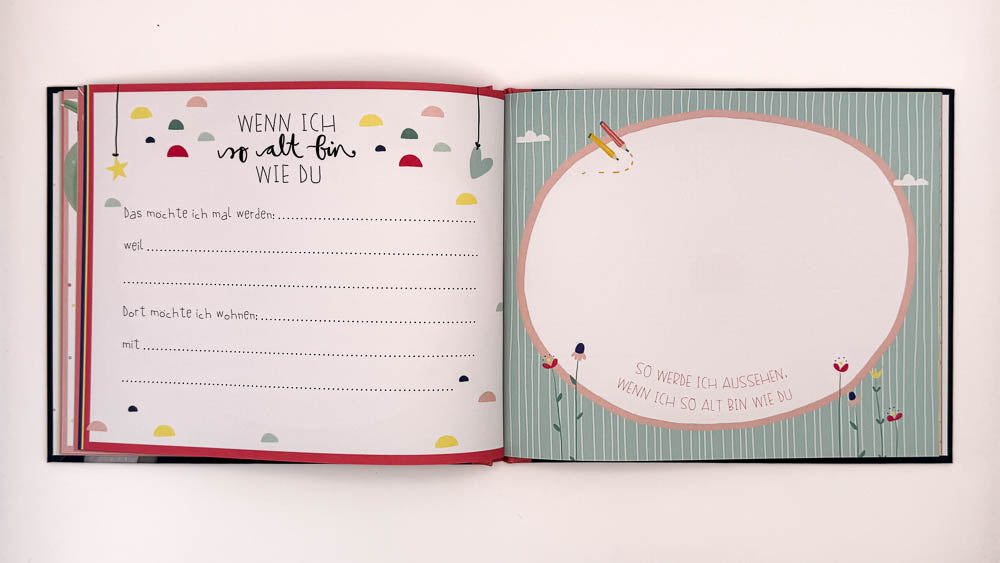 WENN ICH
so alt bin
WIE DU
Das möchte ich mal werden:
weil
Dort möchte ich wohnen:
mit
SO WERDE ICH AUSSEHEN,
WENN ICH SO ALT BIN WIE DU